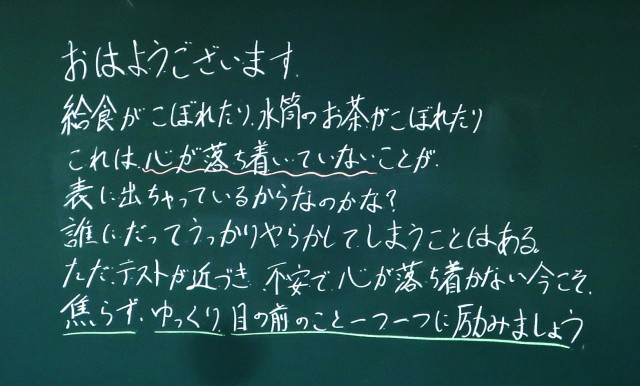 おはようございます.
給食がこぼれたり、水筒のお茶がこぼれたり
これは、心が落ち着いていないことが、
表に出ちゃっているからなのかな?
誰にだってうっかりやらかしてしまうことはある。
ただ、テストが近づき、不安で、心が落ち着かない今こそ、
焦らず、ゆっくり、目の前のこと一つ一つに励みましょう